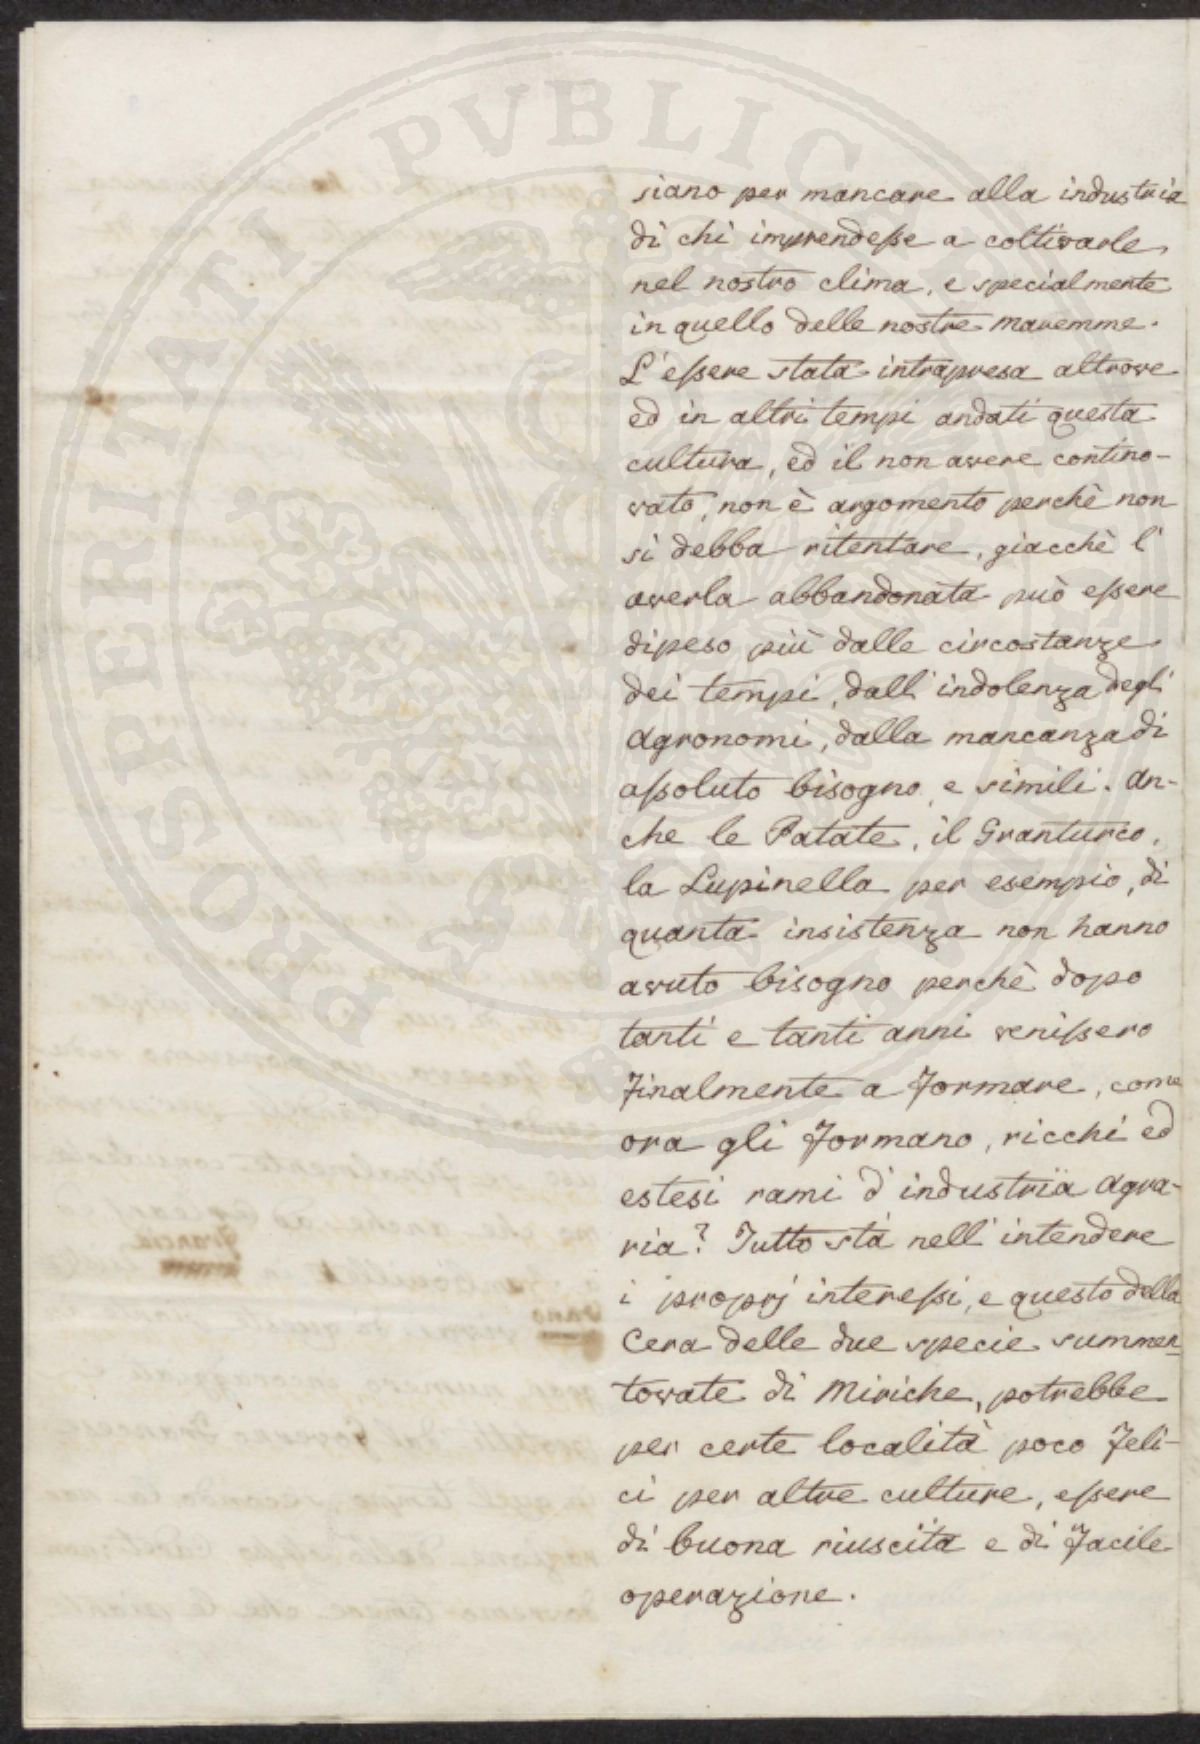 PROSPERITATI PVBLICAE
siano per mancare alla industria
di chi imprendesse a coltivarle,
nel nostro clima, e specialmente
in quello delle nostre maremme.
L'essere stata intrapresa altrove
ed in altri tempi andati questa
cultura, ed il non avere contino-
vato, non è argomento perchè non
si debba ritentare, giacchè l'
averla abbandonata può essere
dipeso più dalle circostanze
dei tempi, dall'indolenza degli
Agronomi, dalla mancanza di
assoluto bisogno, e simili. An-
che le Patate, il Granturco,
la Lupinella per esempio, di
quanta insistenza non hanno
avuto bisogno perchè dopo
tanti e tanti anni venissero
finalmente a formare, come
ora gli formano, ricchi ed
estesi rami d'industria Agra-
ria? Tutto stà nell'intendere
i proprj interessi, e questo della
Cera delle due specie summen-
tovate di Miriche, potrebbe
per certe località poco feli-
ci per altre culture, essere
di buona riuscita e di facile
operazione.